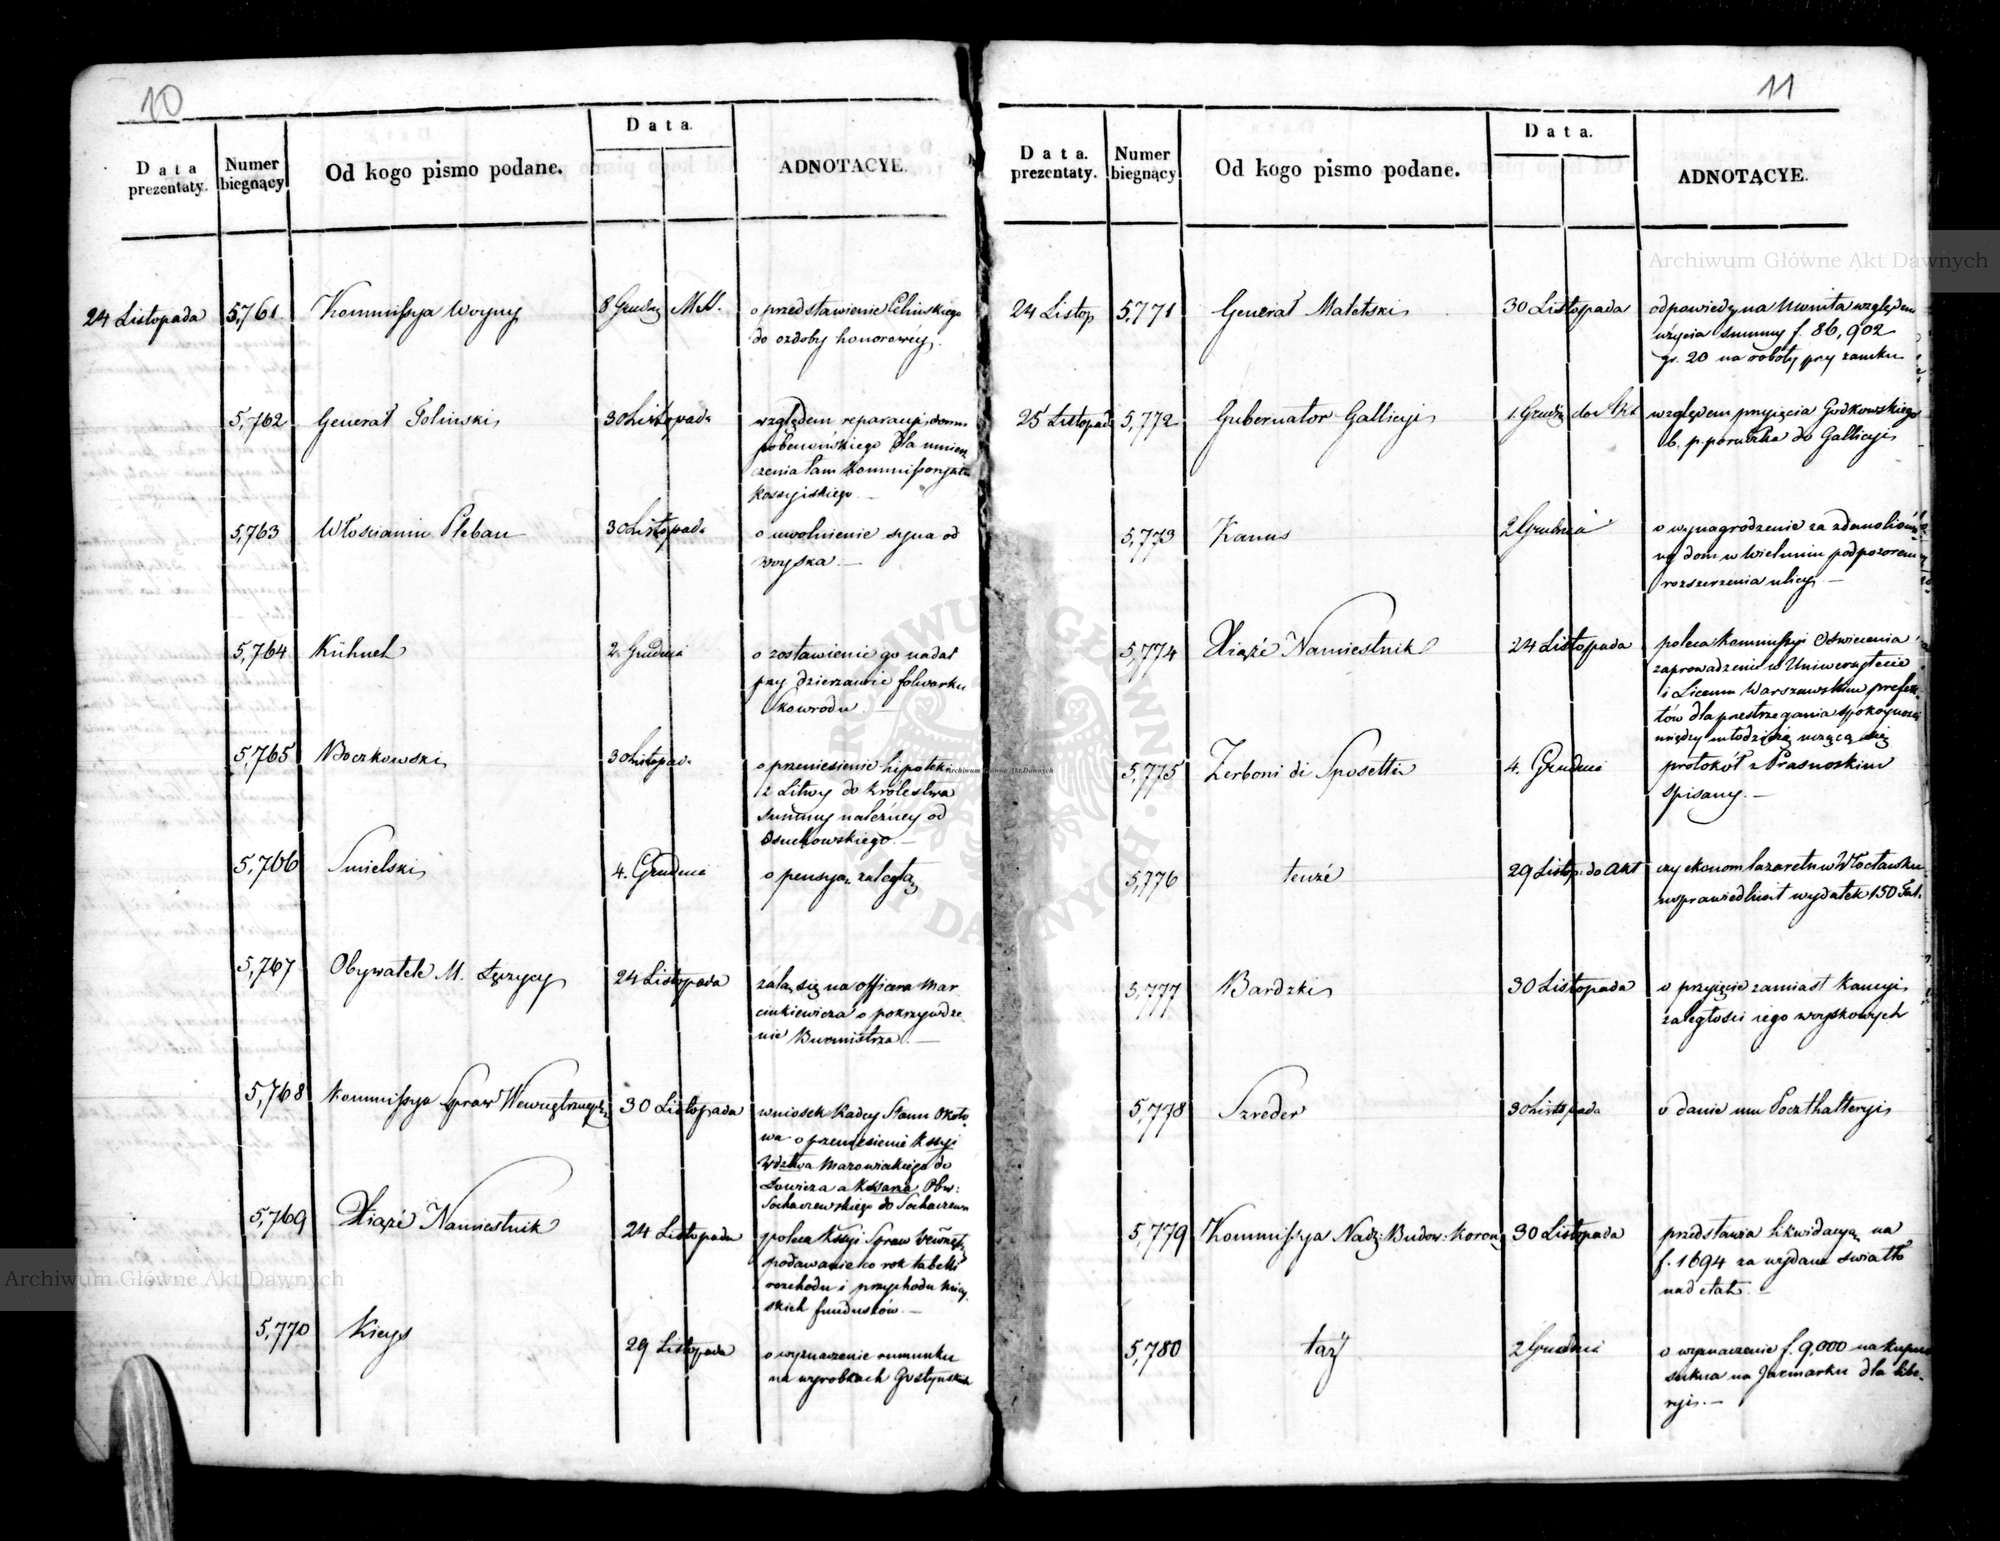 10
Data prezentaty.
Numer biegnący
Od kogo pismo podane.
Data.
ADNOTACYE.
24 Listopada 5,761 Kommissya Woyny 8 Grudn
o przedstawienie Celinskiego
do ozdoby honorowéy.
5,762 Generał 30 Listopada
względem reparacyi domu
dla umiesz-
czenia tam Kommissoryatu
Rossyiskiego.
5,763 Włościanin Pleban 30 Listopada
o uwolnienie syna od
woyska.
5,764 Kühnel 2 Grudnia
o zostawienie go nadal
przy dzierzawie folwarku
5,765 Boczkowski 30 Listopad
o przeniesienie hipoteki
z Litwy do Królestwa
Summy należney od
Osuchowskiego.
5,766 Smielski 4. Grudnia
o pensyą zaległą
5,767 Obywatele M. Łęczycy 24 Listopada
żalą się na officera Mar-
cinkiewicza o pokrzywdze-
nie Burmistrza.
5,768 Kommissya Spraw Wewnętrznych 30 Listopada
wniosek Radcy Stanu Około-
wa o przeniesienie Kssyi
Wdztwa Mazowiekiego do
Łowicza a Kssarza Obw:
Sochaczewskiego do Sochaczewa
5,769 Xiążé Namiestnik 24 Listopada
poleca Kssyi Spraw Wewnętrz
podawanie co rok tabelli
rozchodu i przychodu miey-
skich funduszów.
5,770 Kicys 29 Listopada
o wyznaczenie rumunku
na wyrobkach Gostynsk
11
Data. prezentaty.
Numer biegnący
Od kogo pismo podane.
Data.
ADNOTACYE.
24 Listop 5,771 Generał Maletski 30 Listopada
odpowiedź na Monita względem
użycia summy f. 86,902
gr. 20 na roboty przy zamku
25 Listopad 5,772 Gubernator Gallicyi 1. Grudn do Akt
względem przyięcia Godkowskiego
b. p.porucka do Gallicyi
5,773 Kanus 2 Grudnia
o wynagrodzenie za zdemoliowa-
ny dom w Wieluniu pod pozorem
rozszerzenia ulicy
5,774 Xiążé Namiestnik 24 Listopada
poleca Kommissyi Oświecenia
zaprowadzenie w Uniwersytecie
i Liceum Warszawskim prefek-
tów dla przestrzegania spokoyności
między młodzieżą uczącą się
5,775 Zerboni di Sposetti 4. Grudnia
protokół z Prasnoskim
spisany.
5,776 tenżé 29 Listop: do Akt
czy ekonom lazaretu w Włocławku
usprawiedliwił wydatek 150 Tal.
5,777 Bardzki 30 Listopada
o przyięcie zamiast Kaucyi
zaległości iego woyskowych
5,778 Szreder 30 Listopada
o danie mu Poczthalteryi
5,779 Kommissya Nadz: Budow: Koron 30 Listopada
przedstawia likwidacyą na
f. 1694 za wydane swiatło
nad etat.
5,780 taż 2 Grudnia
o wyznaczenie f. 9,000 na kupno
sukna na Jarmarku dla libe-
ryi.
Archiwum Główne Akt Dawnych
Archiwum Główne Akt Dawnych
Archiwum Główne Akt Dawnych
ARCHIWUM GŁÓWNE AKT DAWNYCH